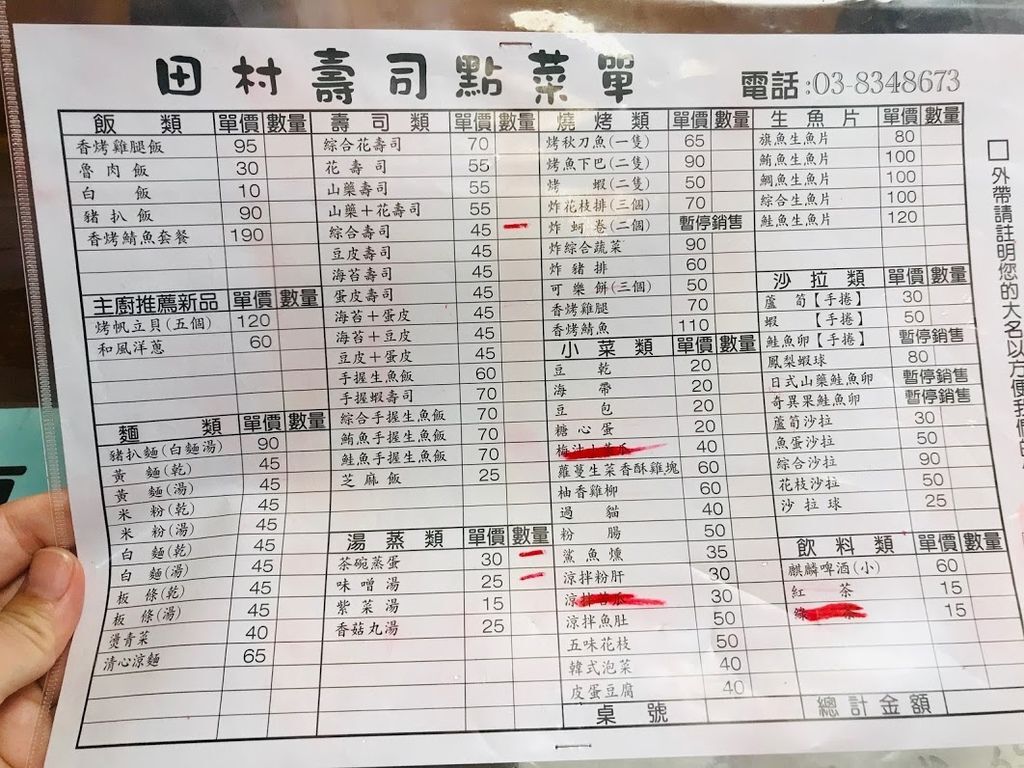 田村壽司點菜單 電話:03-8348673
飯類 單價 數量
香烤雞腿飯 95
魯肉飯 30
白飯 10
豬扒飯 90
香烤鯖魚套餐 190
主廚推薦新品 單價 數量
烤帆立貝(五個) 120
和風洋蔥 60
麵類 單價 數量
豬扒麵(白麵湯) 90
黃麵(乾) 45
黃麵(湯) 45
米粉(乾) 45
米粉(湯) 45
白麵(乾) 45
白麵(湯) 45
板條(乾) 45
板條(湯) 45
燙青菜 40
清心涼麵 65
壽司類 單價 數量
綜合花壽司 70
花壽司 55
山藥壽司 55
山藥+花壽司 55
綜合壽司 45
豆皮壽司 45
海苔壽司 45
蛋皮壽司 45
海苔+蛋皮 45
海苔+豆皮 45
豆皮+蛋皮 45
手握生魚飯 60
手握蝦壽司 70
綜合手握生魚飯 70
鮪魚手握生魚飯 70
鮭魚手握生魚飯 70
芝麻飯 25
湯蒸類 單價 數量
茶碗蒸蛋 30
味噌湯 25
紫菜湯 15
香菇丸湯 25
燒烤類 單價 數量
烤秋刀魚(一隻) 65
烤魚下巴(二隻) 90
烤蝦(二隻) 50
炸花枝排(三個) 70
炸蚵卷(二個) 暫停銷售
炸綜合蔬菜 90
炸豬排 60
可樂餅(三個) 50
香烤雞腿 70
香烤鯖魚 110
小菜類 單價 數量
豆乾 20
海帶 20
豆包 20
糖心蛋 20
40
蘿蔓生菜香酥雞塊 60
柚香雞柳 60
過貓 40
粉腸 50
鯊魚燻 35
涼拌粉肝 30
涼拌苦瓜 30
涼拌魚肚 50
五味花枝 50
韓式泡菜 40
皮蛋豆腐 40
桌號
生魚片 單價 數量
旗魚生魚片 80
鮪魚生魚片 100
鯛魚生魚片 100
綜合生魚片 100
鮭魚生魚片 120
沙拉類 單價 數量
蘆筍【手捲】 30
蝦【手捲】 50
鮭魚卵【手捲】 暫停銷售
鳳梨蝦球 80
日式山藥鮭魚卵 暫停銷售
奇異果鮭魚卵 暫停銷售
蘆筍沙拉 30
魚蛋沙拉 50
綜合沙拉 90
花枝沙拉 50
沙拉球 25
飲料類 單價 數量
麒麟啤酒(小) 60
紅茶 15
15
總計金額
□外帶請註明您的大名以方便我們